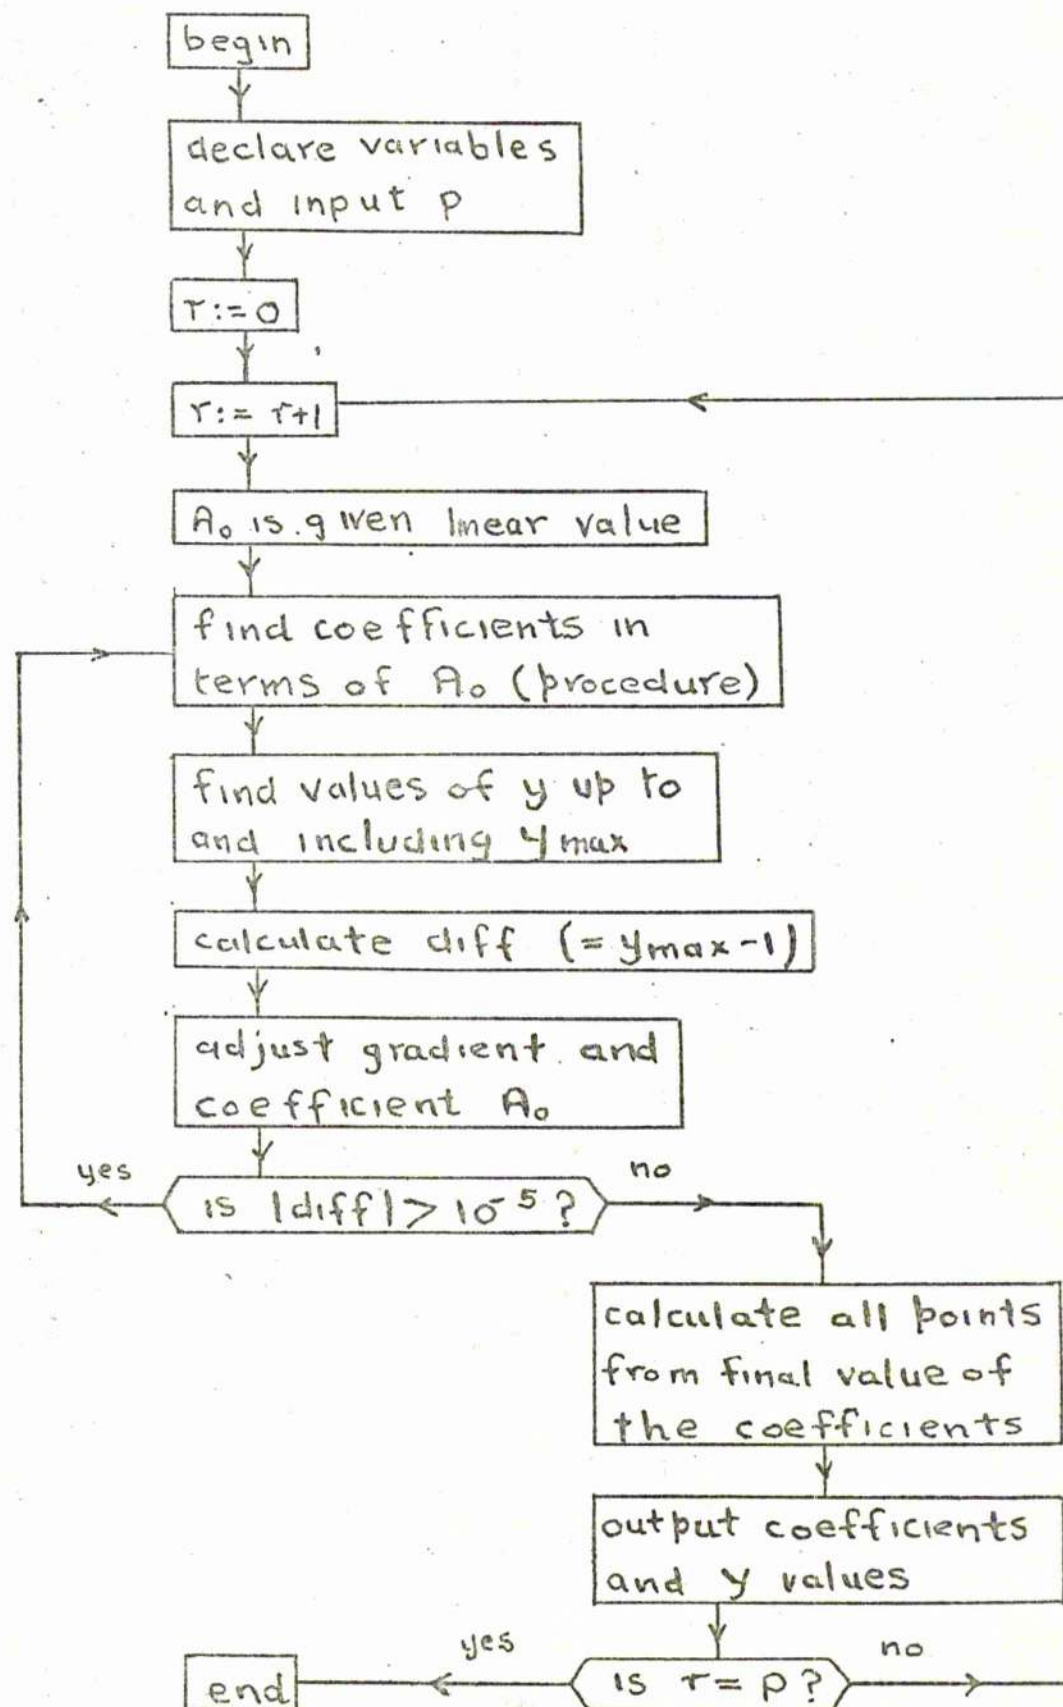 begin
declare variables
and input p
r:=0
r:= r+1
A₀ is given linear value
find coefficients in
terms of A₀ (procedure)
find values of y up to
and including y max
calculate diff (= ymax -1)
adjust gradient and
coefficient A₀
yes
is |diff| > 10⁻⁵ ?
no
calculate all points
from final value of
the coefficients
output coefficients
and y values
yes
is r = p ?
no
end